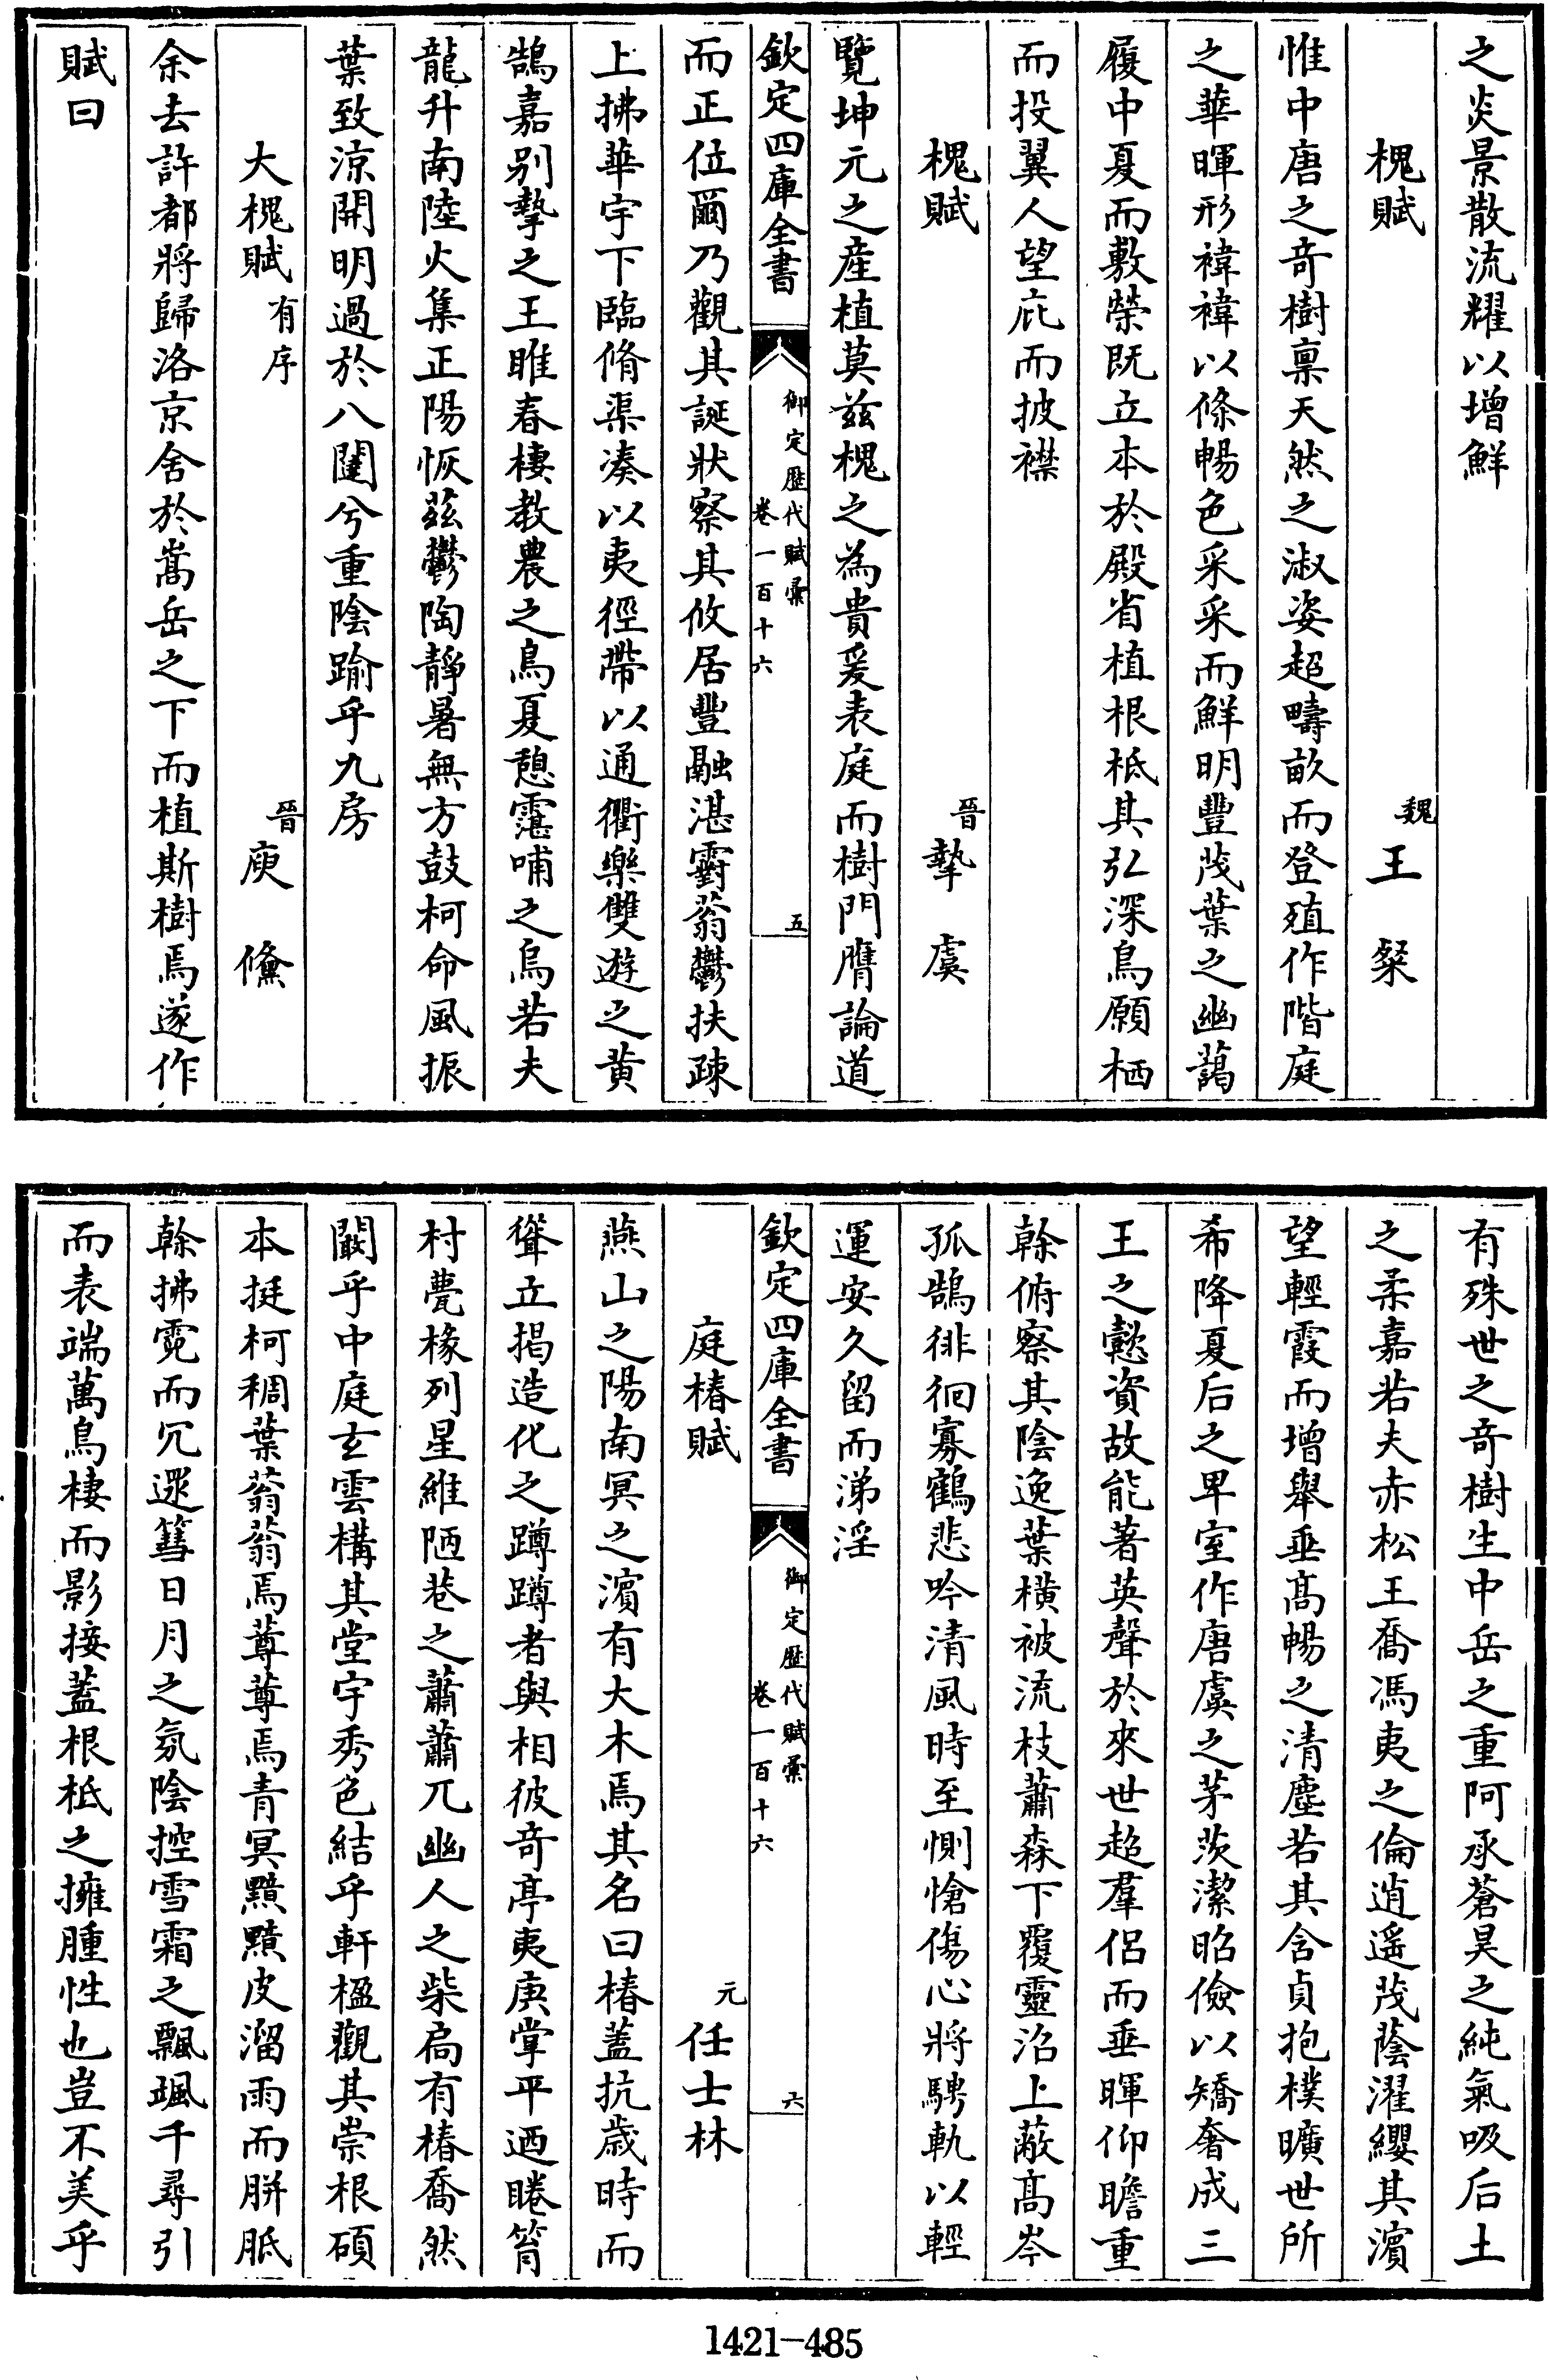 之炎景散流耀以增鮮
槐賦　魏　王粲
惟中唐之竒樹禀天然之淑姿超疇畝而登殖作階庭
之華暉形褘褘以條暢色采采而鮮明豐茂葉之幽藹
履中夏而敷榮既立本於殿省植根柢其弘深鳥願栖
而投翼人望庇而披襟
槐賦　晉　摯虞
覽坤元之産植莫兹槐之為貴爰表庭而樹門膺論道
欽定四庫全書　御定歴代賦彙　卷一百十六　五
而正位爾乃觀其誕狀察其攸居豐融湛霨蓊鬱扶疎
上拂華宇下臨脩渠湊以夷徑帶以通衢樂雙遊之黄
鵠嘉别摯之王雎春棲教農之鳥夏憩靃哺之烏若夫
龍升南陸火集正陽恢茲鬱陶靜暑無方鼓柯命風振
葉致涼開明過於八闥兮重陰踰乎九房
大槐賦有序　晉　庾儵
余去許都將歸洛京舍於嵩岳之下而植斯樹焉遂作
賦曰
有殊世之竒樹生中岳之重阿承蒼昊之純氣吸后土
之柔嘉若夫赤松王喬馮夷之倫逍遥茂蔭濯纓其濱
望輕霞而增舉垂髙暢之清塵若其含貞抱樸曠世所
希降夏后之卑室作唐虞之茅茨潔昭儉以矯奢成三
王之懿資故能著英聲於來世超羣侣而垂暉仰瞻重
幹俯察其陰逸葉横被流枝蕭森下覆靈沼上蔽髙岑
孤鵠徘徊寡鶴悲吟清風時至惻愴傷心將騁軌以輕
運安久留而涕淫
欽定四庫全書　御定歴代賦彙　卷一百十六　六
庭椿賦　元　任士林
燕山之陽南冥之濱有大木焉其名曰椿蓋抗歳時而
聳立揭造化之蹲蹲者與相彼竒亭夷庚掌平迺睠篟
村甍椽列星維陋巷之蕭蕭兀幽人之柴扃有椿喬然
闞乎中庭玄雲構其堂宇秀色結乎軒楹觀其崇根碩
本挺柯稠葉蓊蓊焉蓴蓴焉青冥黯黮皮溜雨而胼胝
幹拂霓而冗遝篲日月之氛陰控雪霜之飄颯千尋引
而表端萬鳥棲而影接蓋根柢之擁腫性也豈不美乎
1421-485